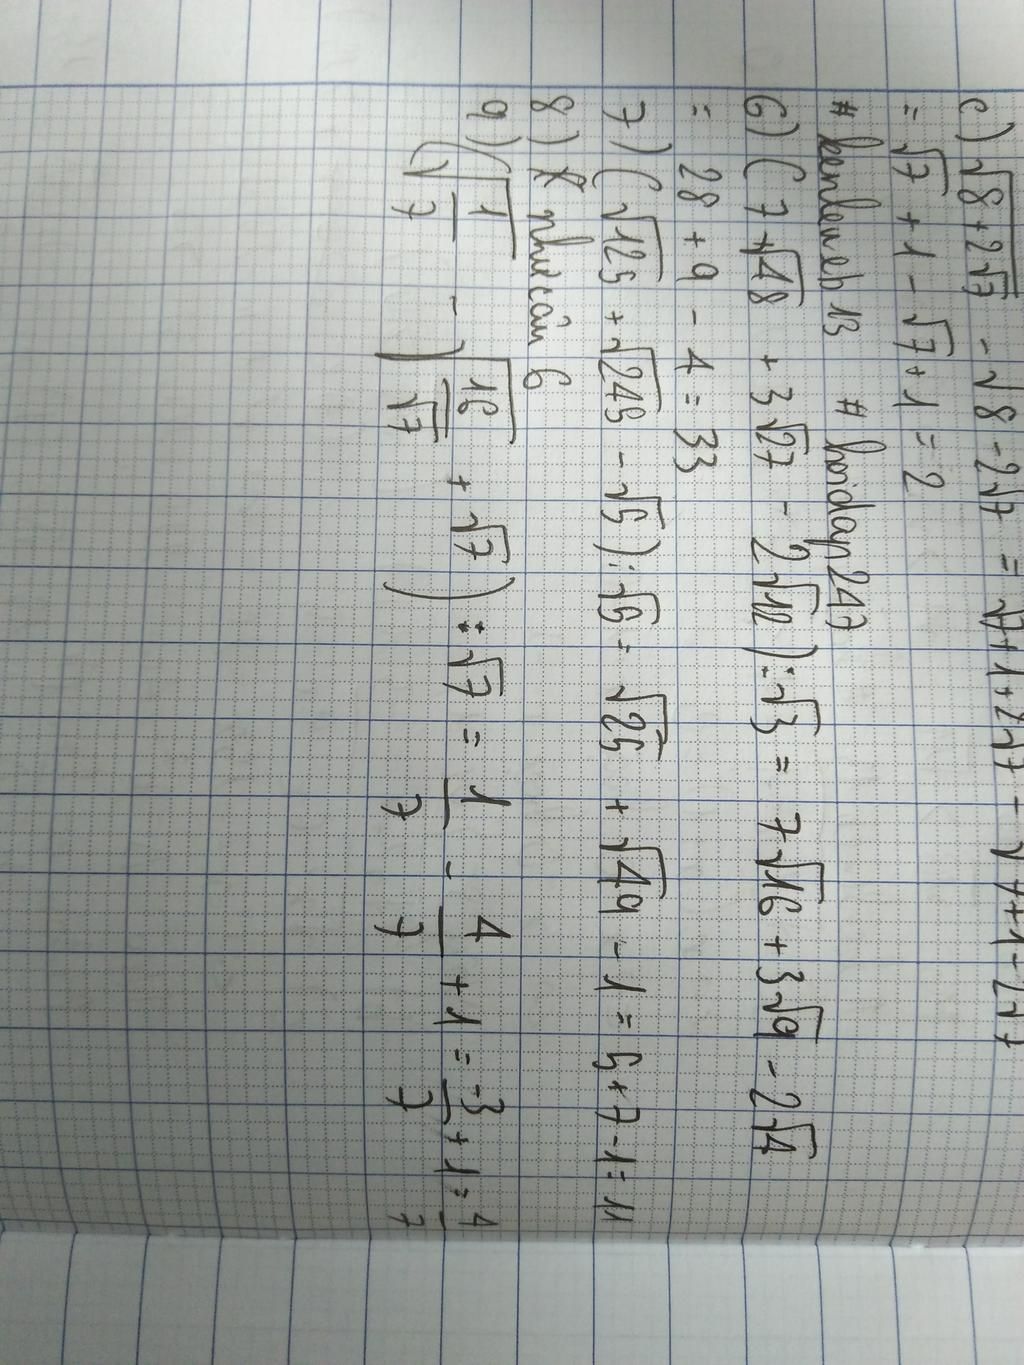 c) √(8+2√7) - √8-2√7 = √7+1+2√7 - √7+1-2√7
= √7 + 1 - √7 + 1 = 2
# kenbeweb13 # hoidap247
6) (7√48 + 3√27 - 2√12) : √3 = 7√16 + 3√9 - 2√4
= 28 + 9 - 4 = 33
7) (√125 + √245 - √5) : √5 = √25 + √49 - 1 = 5+7-1 = 11
8) như câu 6
9) (√(1/7) - √(16/√7) + √7) : √7 = 1/7 - 4/7 + 1 = -3/7 + 1 = 4/7